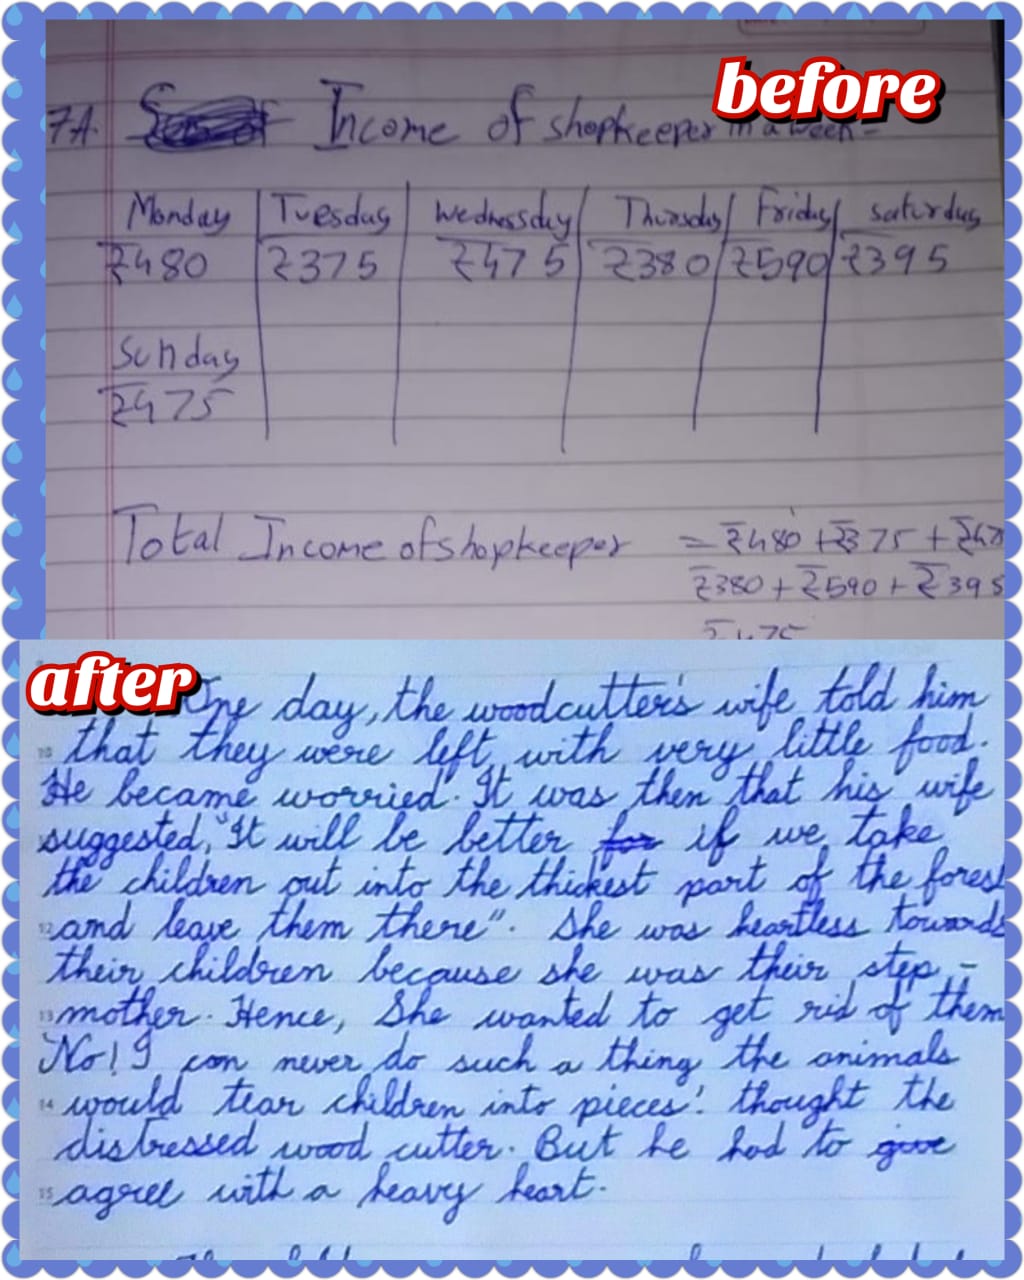 before
7A. Income of shopkeeper in a week -
Monday Tuesday Wednessday Thursday Friday saturday
₹480 ₹375 ₹475 ₹380 ₹590 ₹395
Sunday
₹475
Total Income of shopkeeper = ₹480 + ₹375 + ₹47
₹380 + ₹590 + ₹395
₹475
after
One day, the woodcutter's wife told him
10 that they were left with very little food.
He became worried. It was then that his wife
suggested, "It will be better for if we take
the children out into the thickest part of the forest
12 and leave them there". She was heartless towards
their children because she was their step -
13 mother. Hence, She wanted to get rid of them
No! I can never do such a thing the animals
14 would tear children into pieces! thought the
distressed wood cutter. But he had to give
15 agree with a heavy heart.